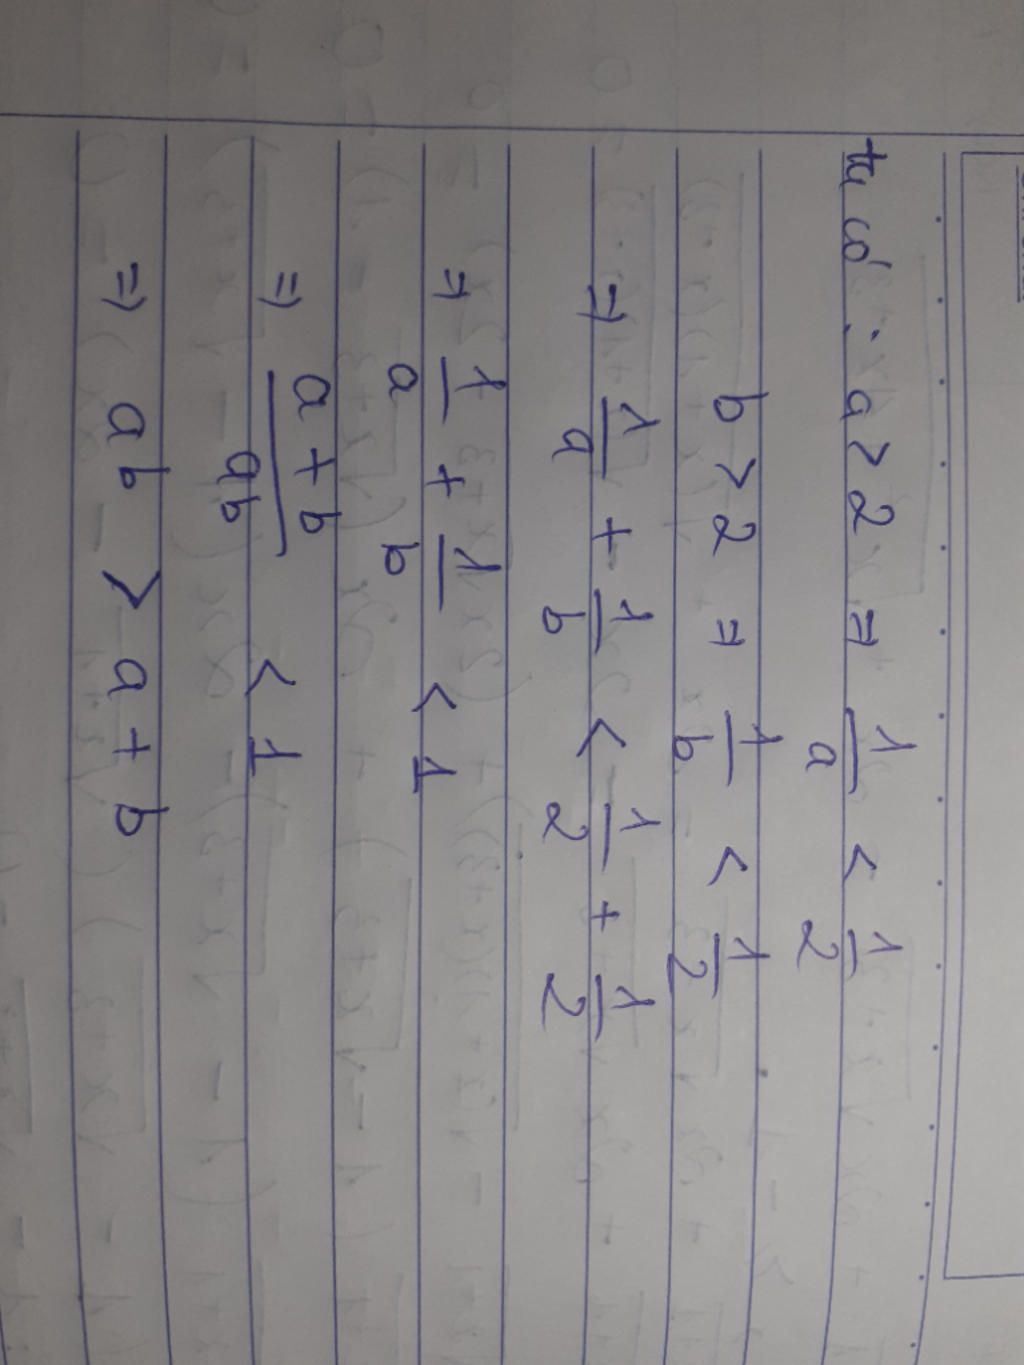 ta có : a > 2 ⇒ 1/a < 1/2
b > 2 ⇒ 1/b < 1/2
⇒ 1/a + 1/b < 1/2 + 1/2
⇒ 1/a + 1/b < 1
⇒ a + b/ab < 1
⇒ ab > a + b